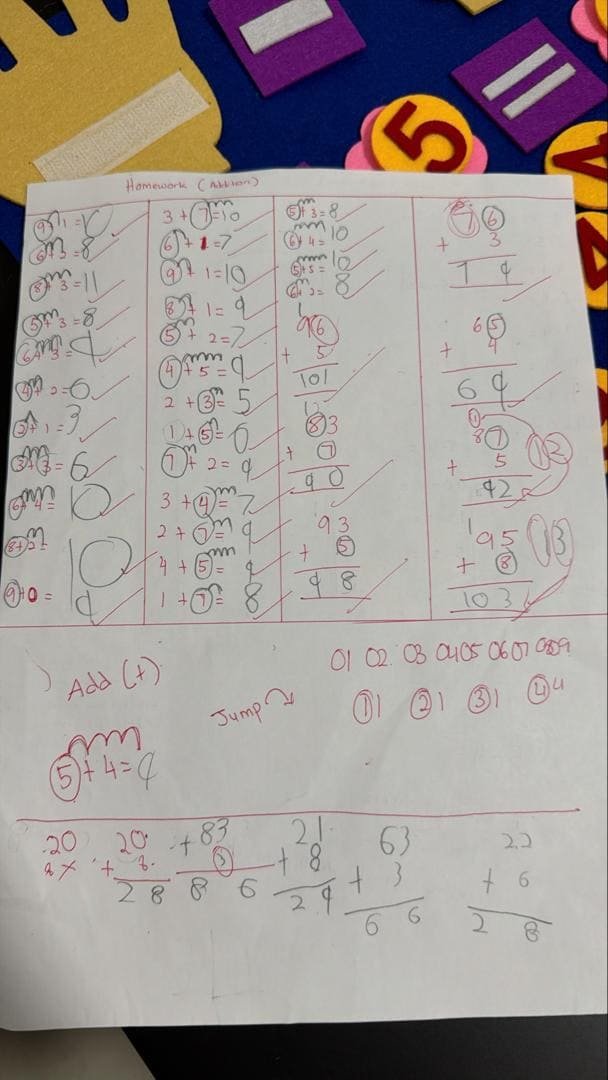 Homework (Addition)
9+1=10
6+3=8
8+3=11
5+3=8
6+3=9
4+2=6
2+1=3
3+3=6
6+4=10
8+2=10
9+0=9
3+7=10
6+1=7
9+1=10
8+1=9
5+2=7
4+5=9
2+3=5
1+5=6
7+2=9
3+4=7
2+7=9
4+5=9
1+7=8
5+3=8
6+4=10
5+5=10
6+2=8
1
96
+ 5
101
83
+ 7
90
93
+ 5
98
76
+ 3
79
65
+ 4
69
1
87
+ 5
92
12
1
95
+ 8
103
13
Add (+)
Jump
01 02 03 04 05 06 07 08 09
1 1 2 1 3 1 4 4
5+4=9
20
8 x
20
+ 8
28
+83
3
86
21
+ 8
29
63
+ 3
66
22
+ 6
28
5